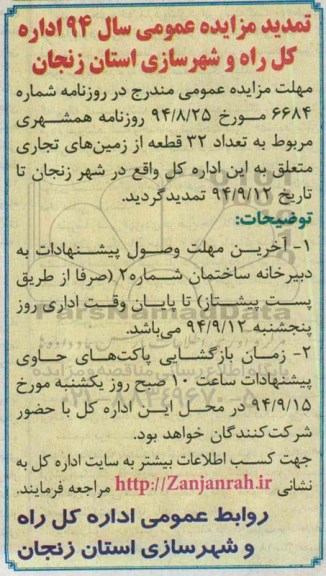 تمدید مزایده عمومی سال ۹۴ اداره
کل راه و شهرسازی استان زنجان
مهلت مزایده عمومی مندرج در روزنامه شماره
۶۶۸۴ مورخ ۹۴/۸/۲۵ روزنامه همشهری
مربوط به تعداد ۳۲ قطعه از زمین‌های تجاری
متعلق به این اداره کل واقع در شهر زنجان تا
تاریخ ۹۴/۹/۱۲ تمدیدگردید.
توضیحات:
۱- آخرین مهلت وصول پیشنهادات به
دبیرخانه ساختمان شماره۲ (صرفا از طریق
پست پیشتاز) تا پایان وقت اداری روز
پنجشنبه ۹۴/۹/۱۲ می‌باشد.
۲- زمان بازگشایی پاکت‌های حاوی
پیشنهادات ساعت ۱۰ صبح روز یکشنبه مورخ
۹۴/۹/۱۵ در محل این اداره کل با حضور
شرکت‌کنندگان خواهد بود.
جهت کسب اطلاعات بیشتر به سایت اداره کل به
نشانی http://Zanjanrah.ir مراجعه فرمایند.
روابط عمومی اداره کل راه
و شهرسازی استان زنجان